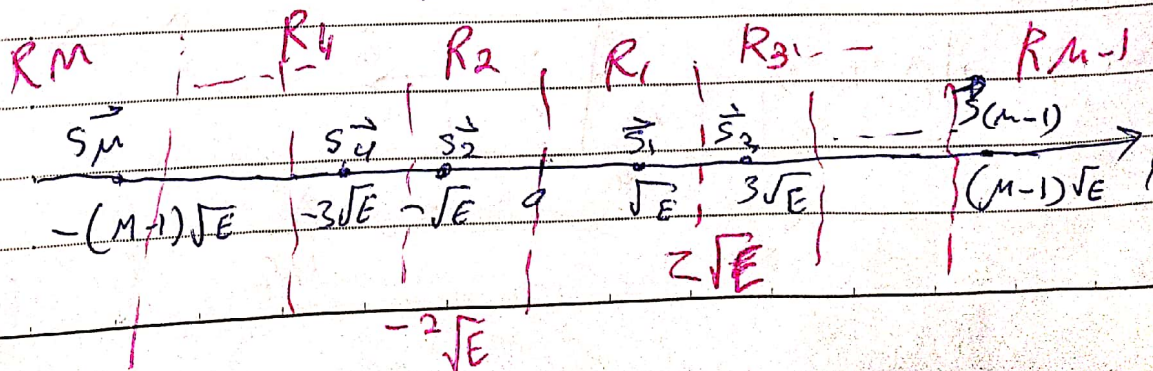 RM R4 R2 R1 R3 -- RM-1
S⃗M S⃗4 S⃗2 S⃗1 S⃗3 ---- S⃗(M-1)
-(M-1)√E -3√E -√E 0 √E 3√E (M-1)√E
2√E
-2√E